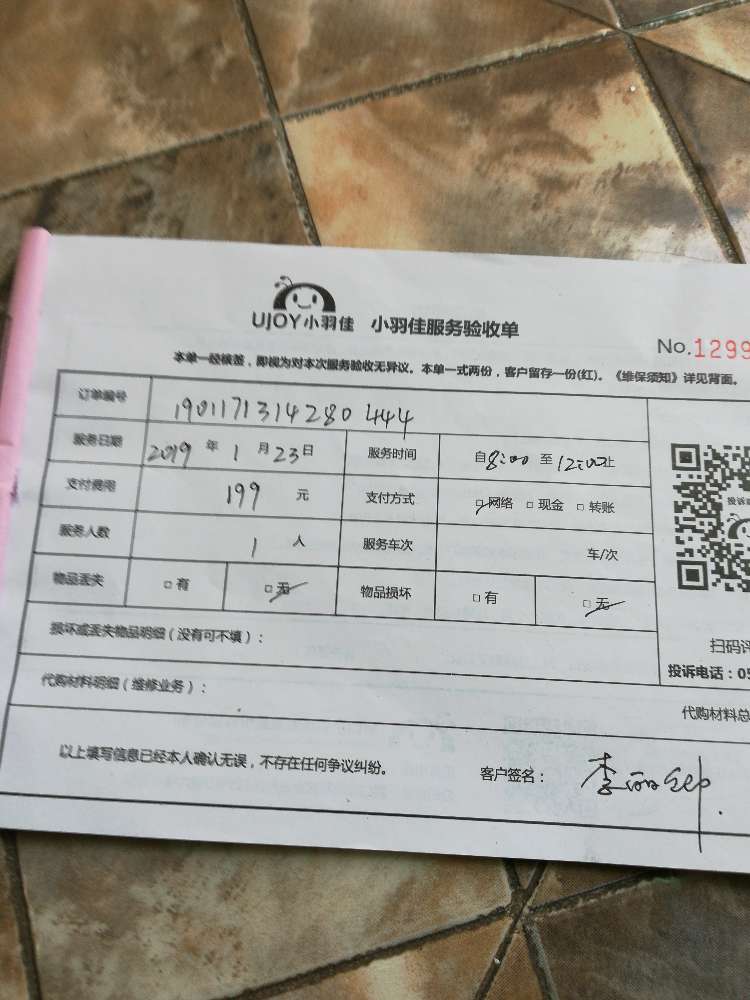 UJOY小羽佳 小羽佳服务验收单
No.1299
本单一经核签，即视为对本次服务验收无异议。本单一式两份，客户留存一份(红)。《维保须知》详见背面。
订单编号 1901171314280444
服务日期 2019 年 1 月 23 日 服务时间 自 8:00 至 12:00 止
支付费用 199 元 支付方式 □ 网络 □ 现金 □ 转账
服务人数 1 人 服务车次 车/次
物品丢失 □ 有 □ 无 物品损坏 □ 有 □ 无
损坏或丢失物品明细（没有可不填）：
扫码评
投诉电话：05
代购材料明细（维修业务）： 代购材料总
以上填写信息已经本人确认无误，不存在任何争议纠纷。 客户签名： 李丽